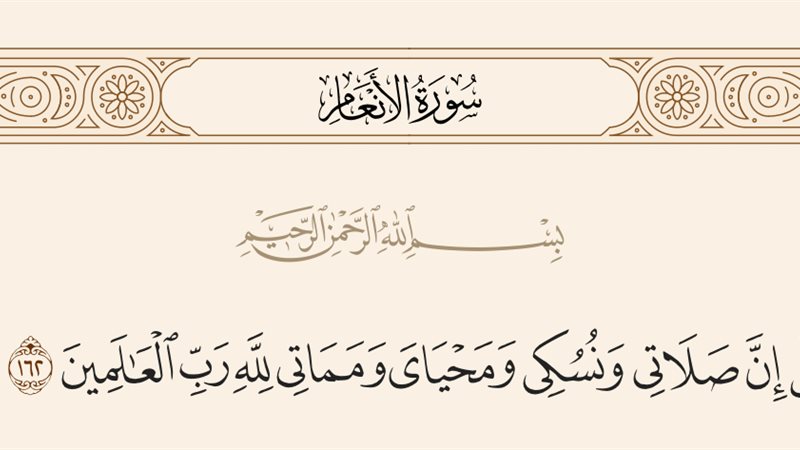 سُورَةُ الأَنْعَامِ
بِسْمِ ٱللَّهِ ٱلرَّحْمَٰنِ ٱلرَّحِيمِ
إِنَّ صَلَاتِى وَنُسُكِى وَمَحْيَاىَ وَمَمَاتِى لِلَّهِ رَبِّ ٱلْعَـٰلَمِينَ ١٦٢